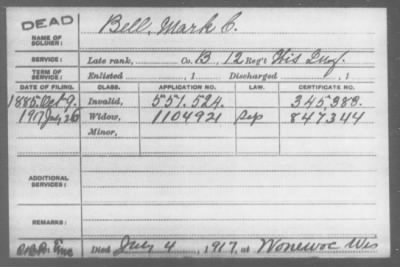 DEAD
NAME OF SOLDIER: Bell, Mark C.
SERVICE: Late rank, Co. B, 12 Reg't Wis Inf.
TERM OF SERVICE: Enlisted , 1 Discharged , 1
DATE OF FILING. CLASS. APPLICATION NO. LAW. CERTIFICATE NO.
1885. Oct 9. Invalid, 551.524. 345.383.
1917 July 26 Widow, 1104921 847344
Minor,
ADDITIONAL SERVICES:
REMARKS:
Died July 4, 1917, at Wonewoc Wis